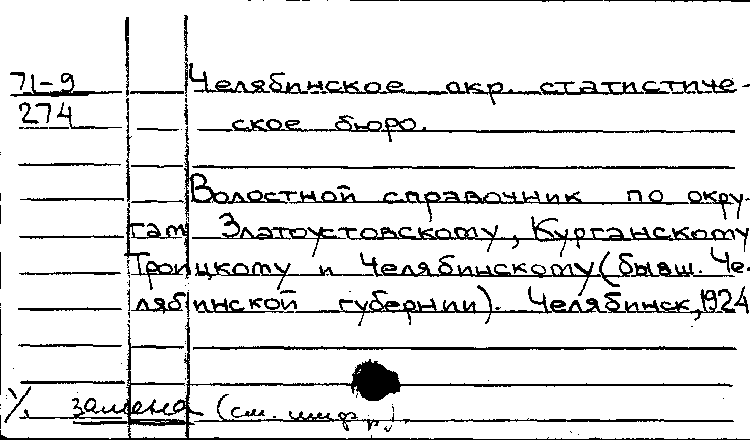 71-9 Челябинское окр. статистиче-
274 ское бюро.
Волостной справочник по окру-
гам Златоустовскому, Курганскому
Троицкому и Челябинскому (бывш. Че-
лябинской губернии). Челябинск, 1924
замена (см. шифр).